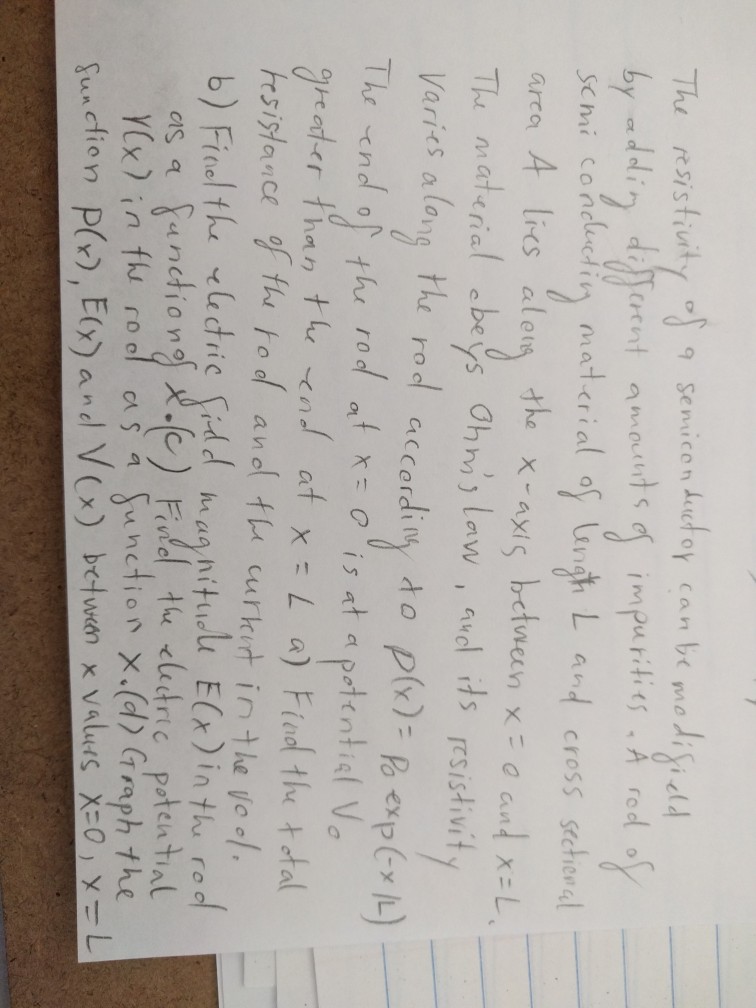 The resistivity of a semiconductor can be modifield
by adding different amounts of impurities. A rod of
semi conducting material of length L and cross sectional
area A lies along the x-axis between x=0 and x=L.
The material obeys Ohm's law, and its resistivity
varies along the rod according to ρ(x)=ρ₀ exp(-x/L)
The end of the rod at x=0 is at a potential V₀
greater than the end at x=L a) Find the total
resistance of the rod and the current in the rod.
b) Find the electric field magnitude E(x) in the rod
as a function of x.(c) Find the electric potential
V(x) in the rod as a function x.(d) Graph the
function ρ(x), E(x) and V(x) between x values x=0, x=L